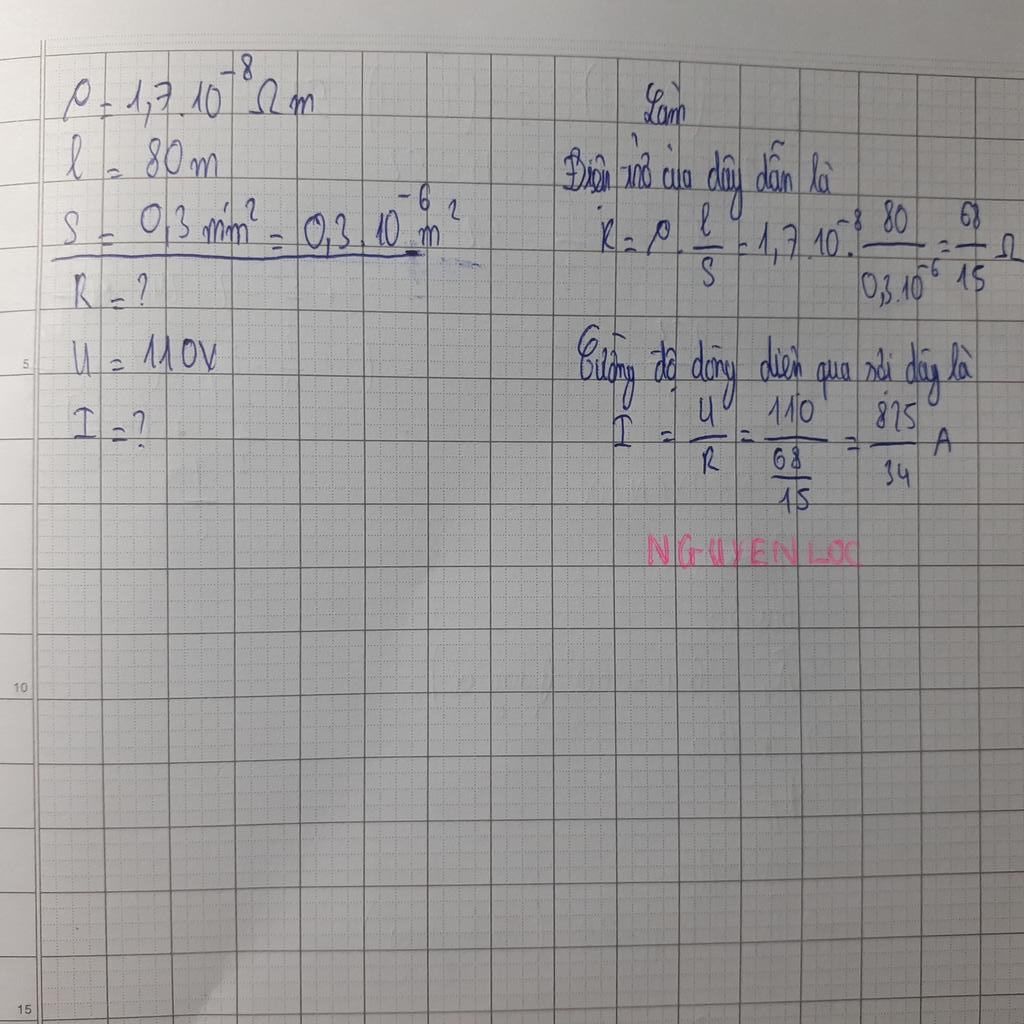 ρ = 1,7.10⁻⁸ Ω m
l = 80m
S = 0,3 mm² = 0,3.10⁻⁶ m²
R = ?
U = 110V
I = ?
Làm
Điện trở của dây dẫn là
R = ρ . l/S = 1,7.10⁻⁸ . 80/0,3.10⁻⁶ = 68/15 Ω
Cường độ dòng điện qua sợi dây là
I = U/R = 110/(68/15) = 825/34 A
NGUYENLOC
5
10
15